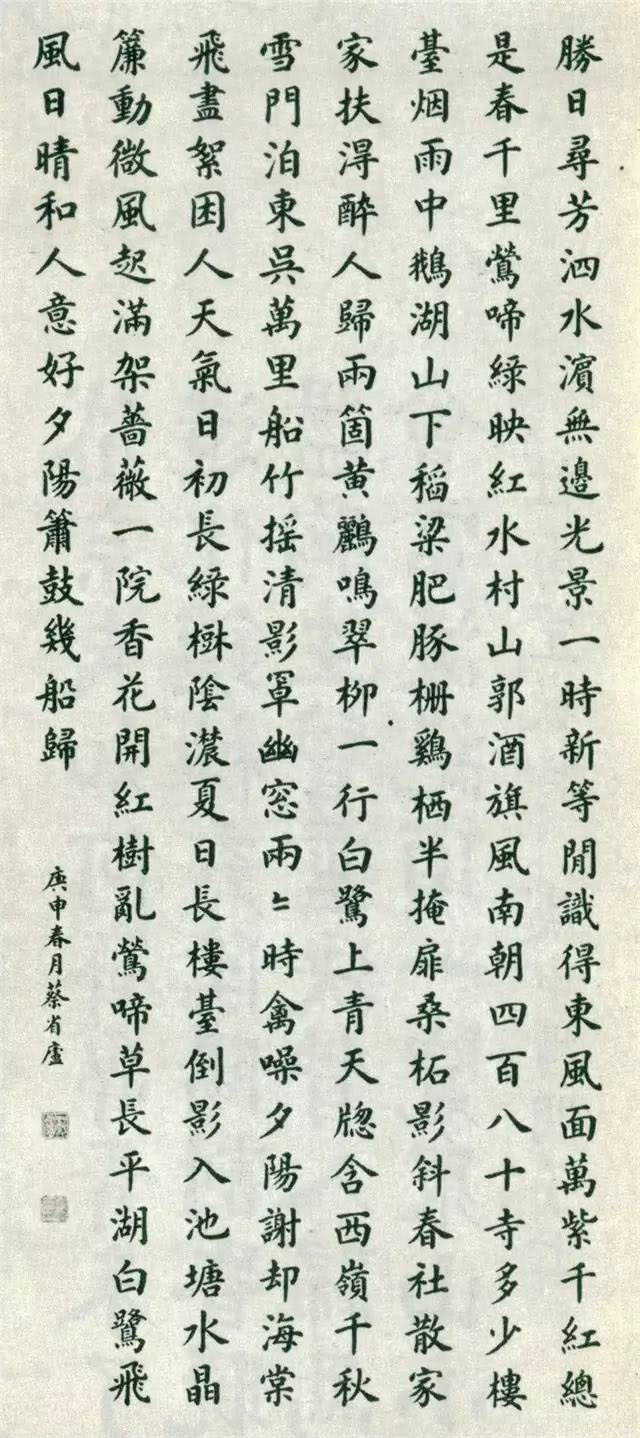 勝日尋芳泗水濱無邊光景一時新等閒識得東風面萬紫千紅總
是春千里鶯啼綠映紅水村山郭酒旗風南朝四百八十寺多少樓
臺烟雨中鵝湖山下稻粱肥豚柵鷄栖半掩扉桑柘影斜春社散家
家扶淂醉人歸兩箇黃鸝鳴翠柳一行白鷺上青天牕含西嶺千秋
雪門泊東吳萬里船竹摇清影罩幽窓兩〻時禽噪夕陽謝却海棠
飛盡絮困人天氣日初長綠樹陰濃夏日長樓臺倒影入池塘水晶
簾動微風起滿架薔薇一院香花開紅樹亂鶯啼草長平湖白鷺飛
風日晴和人意好夕陽簫鼓幾船歸
庚申春月蔡省廬